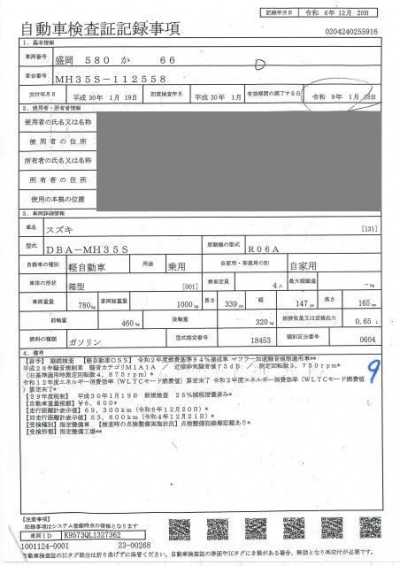 自動車検査証記録事項
記録年月日 令和 6年12月20日
0204240255916
1. 基本情報
車両番号 盛岡 580 か 66
車台番号 MH35S-112558
交付年月日 平成30年 1月19日 初度検査年月 平成30年 1月 有効期間の満了する日 令和 9年 1月18日
2. 使用者・所有者情報
使用者の氏名又は名称
使用者の住所
所有者の氏名又は名称
所有者の住所
使用の本拠の位置
3. 車両詳細情報
車名 スズキ [131]
型式 DBA-MH35S 原動機の型式 R06A
自動車の種別 軽自動車 用途 乗用 自家用・事業用の別 自家用
車体の形状 箱型 [001] 乗車定員 4人 最大積載量 -kg
車両重量 780kg 車両総重量 1000kg 長さ 339cm 幅 147cm 高さ 165cm
前軸重 460kg 後軸重 320kg 総排気量又は定格出力 0.65 L
燃料の種類 ガソリン 型式指定番号 18453 類別区分番号 0604
4. 備考
[岩手] 継続検査 [軽自動車OSS] 令和2年度燃費基準94%達成車 マフラー加速騒音規制適用車**
平成28年騒音規制車 騒音カテゴリM1A1A / 近接排気騒音値73dB / 測定回転数3,750rpm*
(旧基準適用時測定回転数4,875rpm)*
令和12年度エネルギー消費効率(WLTCモード燃費値)算定未了 令和2年度エネルギー消費効率(WLTCモード燃費値)
算定未了*
[29年度税制] 平成30年1月19日 新規検査 25%減税措置済み*
[自動車重量税額] ¥6,600*
[走行距離計表示値] 69,300km (令和6年12月20日)*
[旧走行距離計表示値] 53,600km (令和4年12月21日)*
[受検種別] 指定整備車 [検査時の点検整備実施状況] 点検整備記録簿記載あり*
[受検形態] 指定整備工場**
9
[注意事項] 記録事項はシステム登録時点の情報となります
車両ID K9573QL1327362
1001124-0001 23-00268
自動車検査証のICタグ部分は折り曲げずに保管ください。自動車検査証の券面やICタグにき損がある場合、無効となり再交付が必要です。